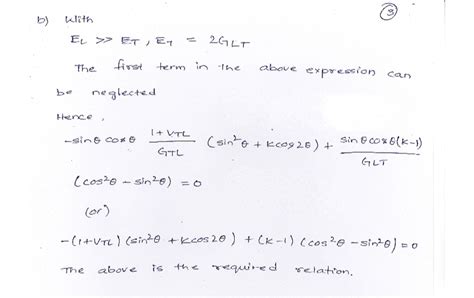 ③
b) With
EL >> ET, ET = 2GLT
The first term in the above expression can
be neglected
Hence,
-sinθ cosθ (1+VTL)/GTL (sin²θ + Kcos2θ) + sinθ cosθ(K-1)/GLT
(cos²θ - sin²θ) = 0
(or)
-(1+VTL) (sin²θ + Kcos2θ) + (K-1) (cos²θ - sin²θ) = 0
The above is the required relation.